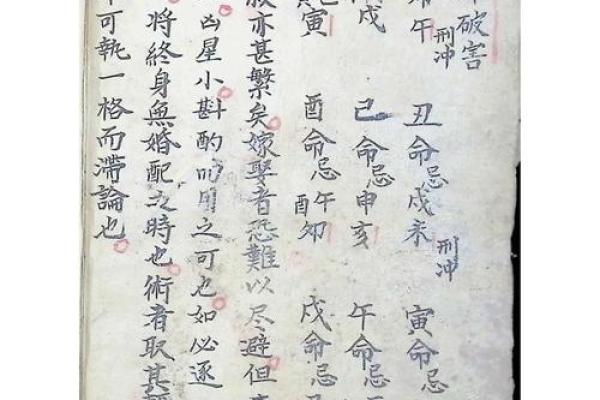 破害
午刑冲丑命忌戌未刑冲寅命忌
戌己命忌申亥午命忌
寅酉命忌午酉卯戌命忌
亦甚繁矣嫁娶者恐難以尽避但
凶星小斟酌而用之可也如必逐
将終身無婚配之時也術者取其
可執一格而滯論也